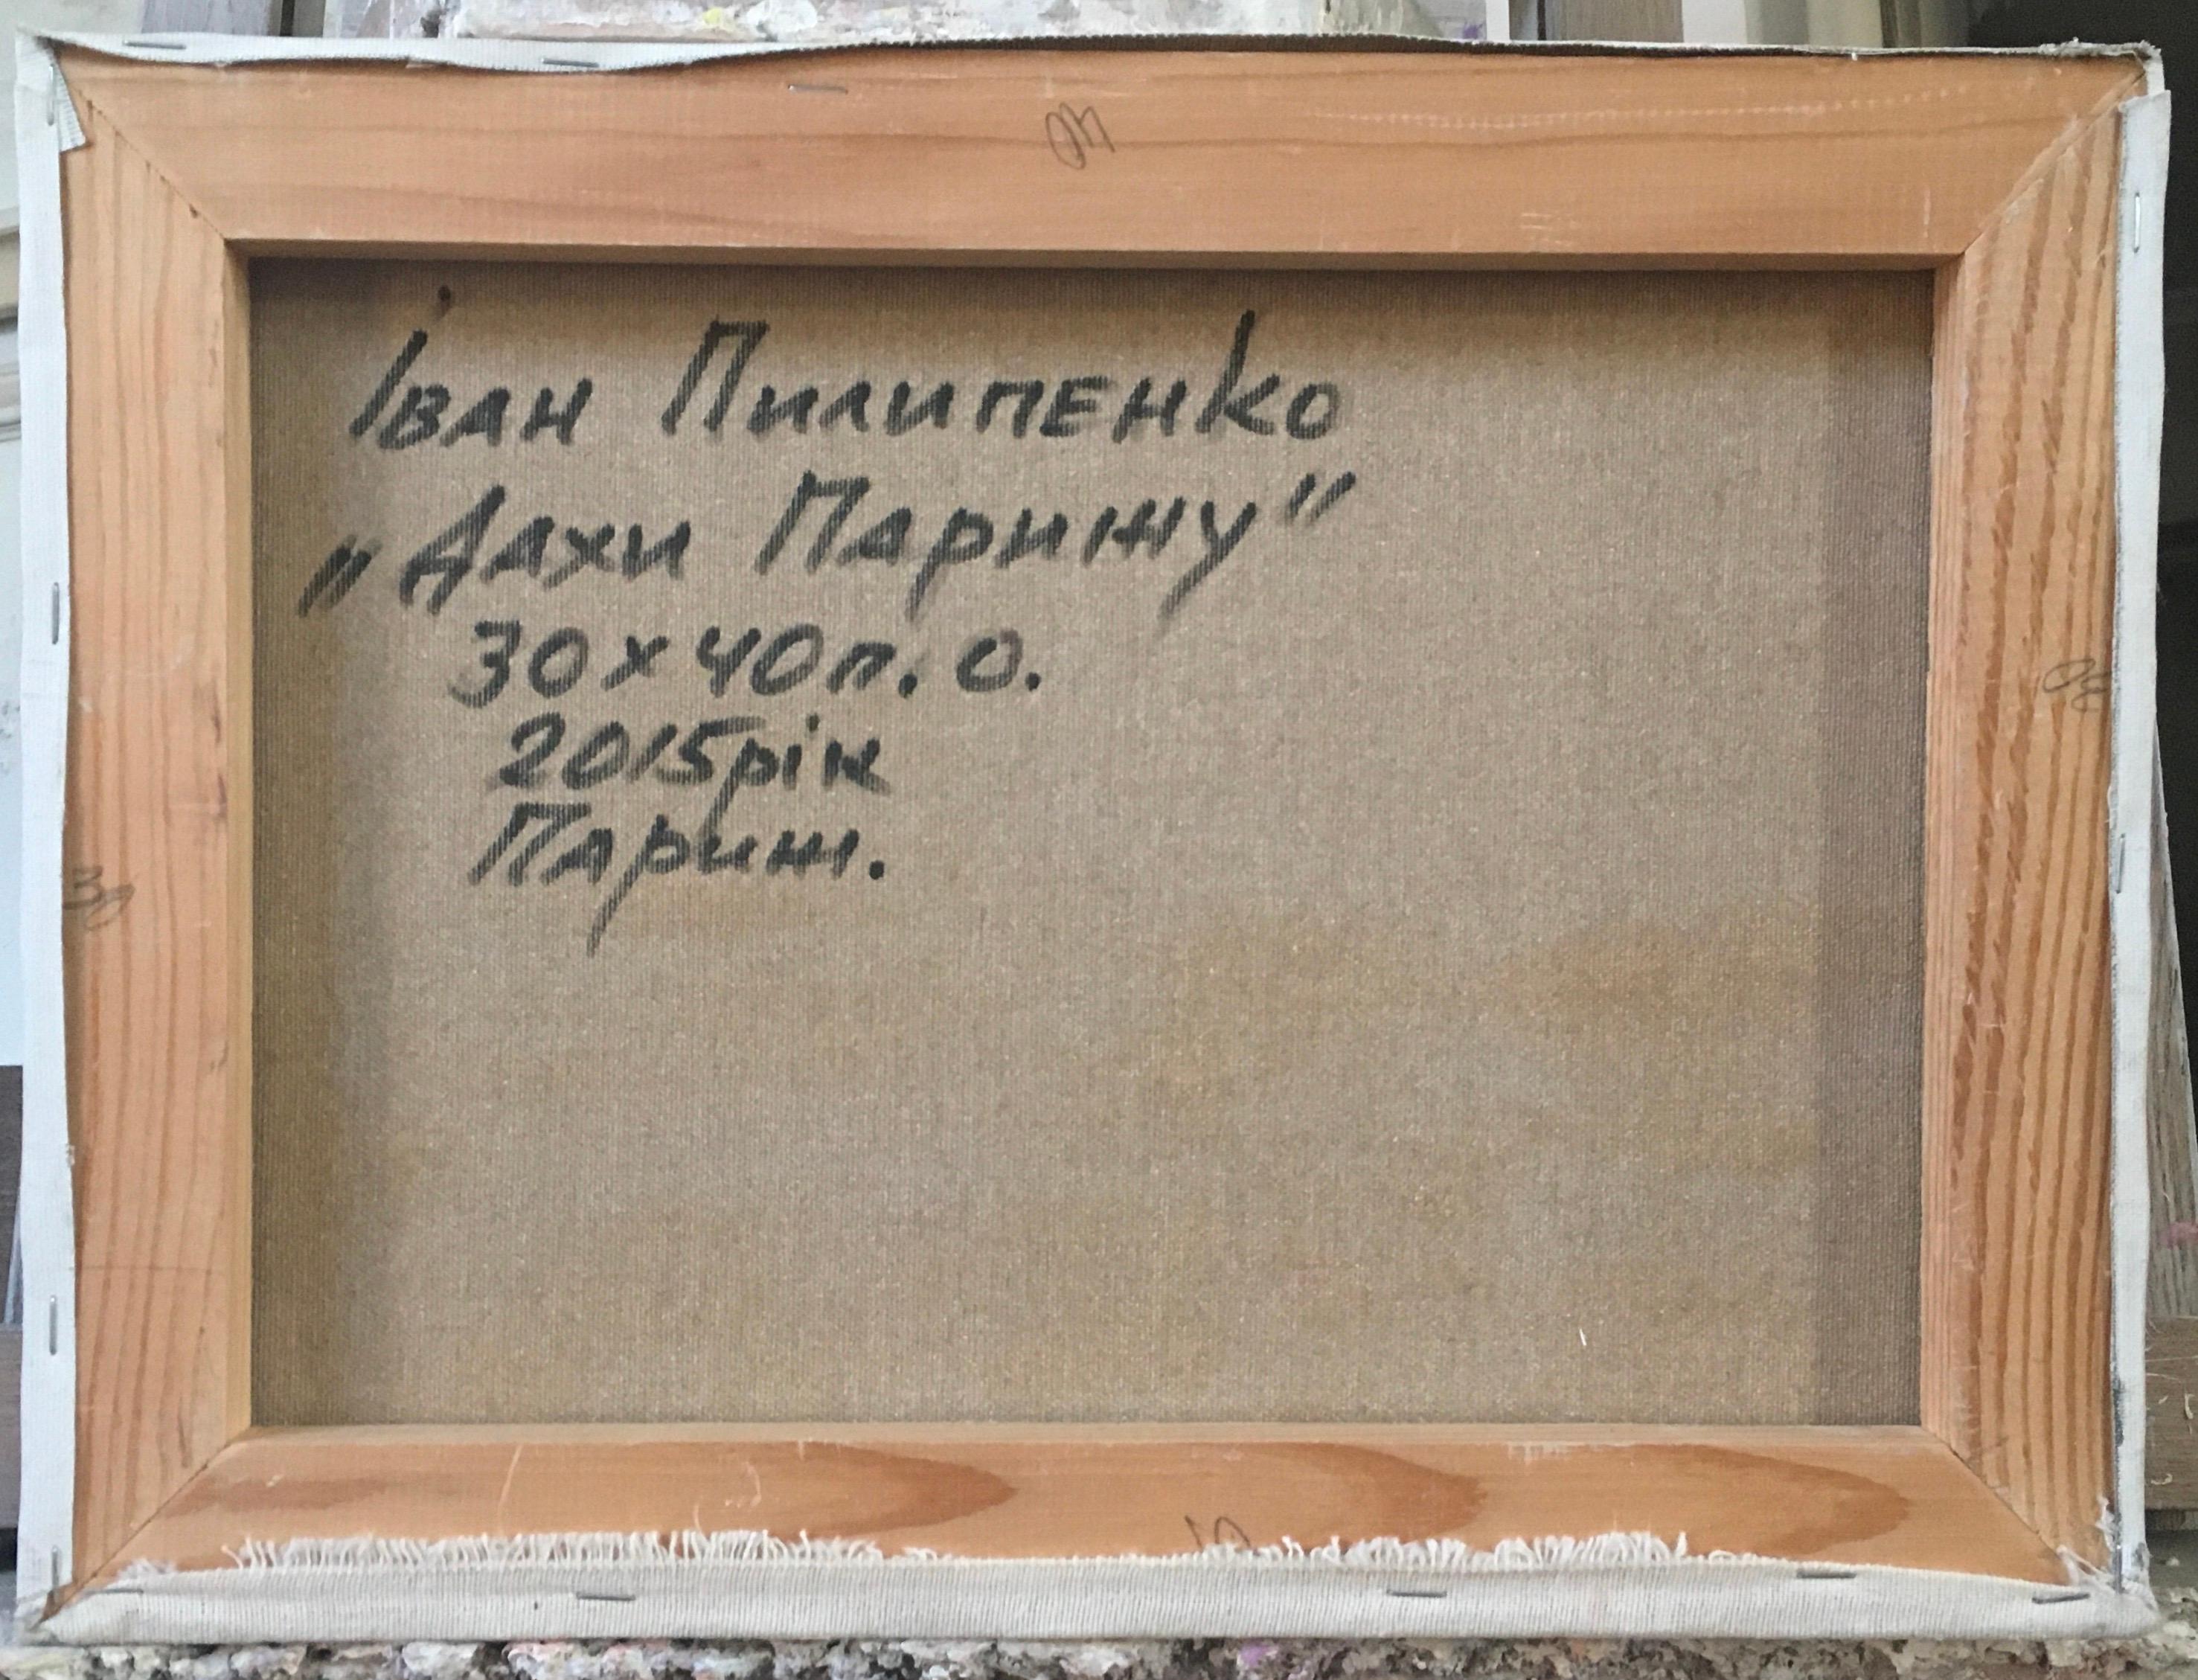 Іван Пилипенко
„Дахи Парижу"
30х40п.о.
2015рік
Париж.
40
30
30